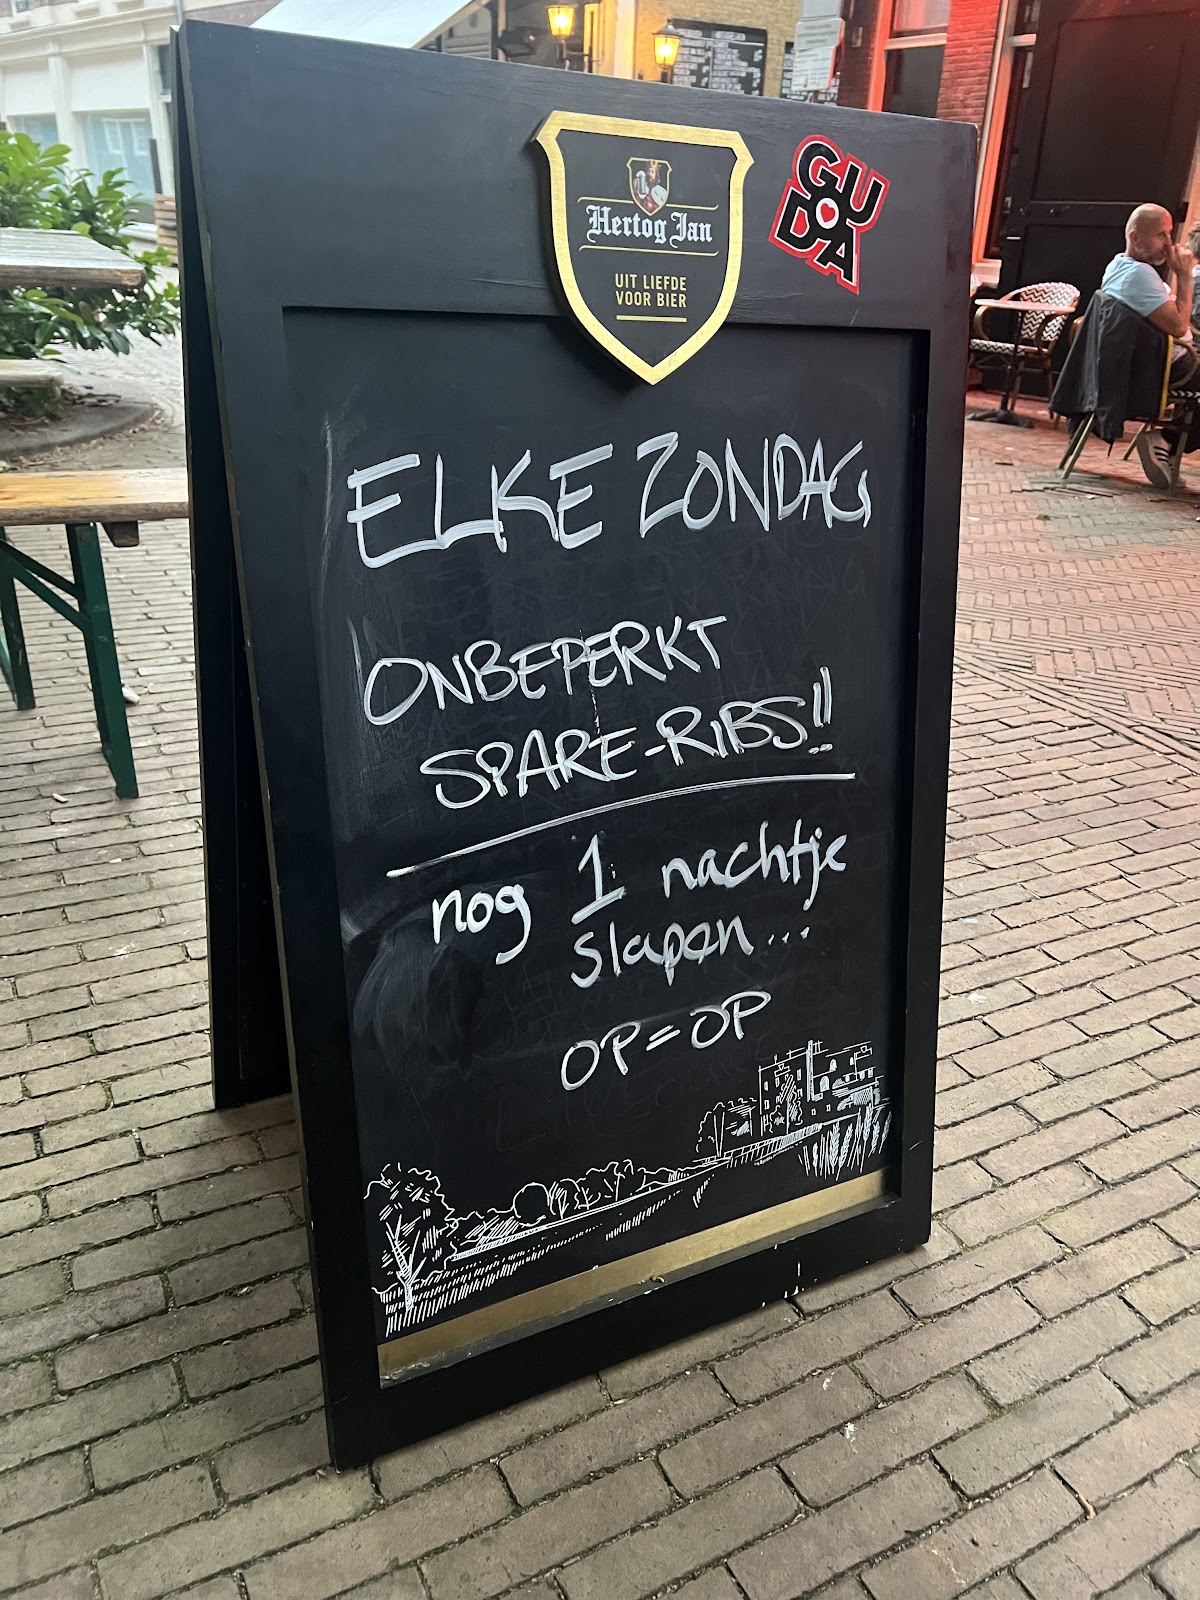 Hertog Jan
UIT LIEFDE
VOOR BIER
GU
DA
ELKE ZONDAG
ONBEPERKT
SPARE-RIBS!!
nog 1 nachtje
slapen...
OP=OP